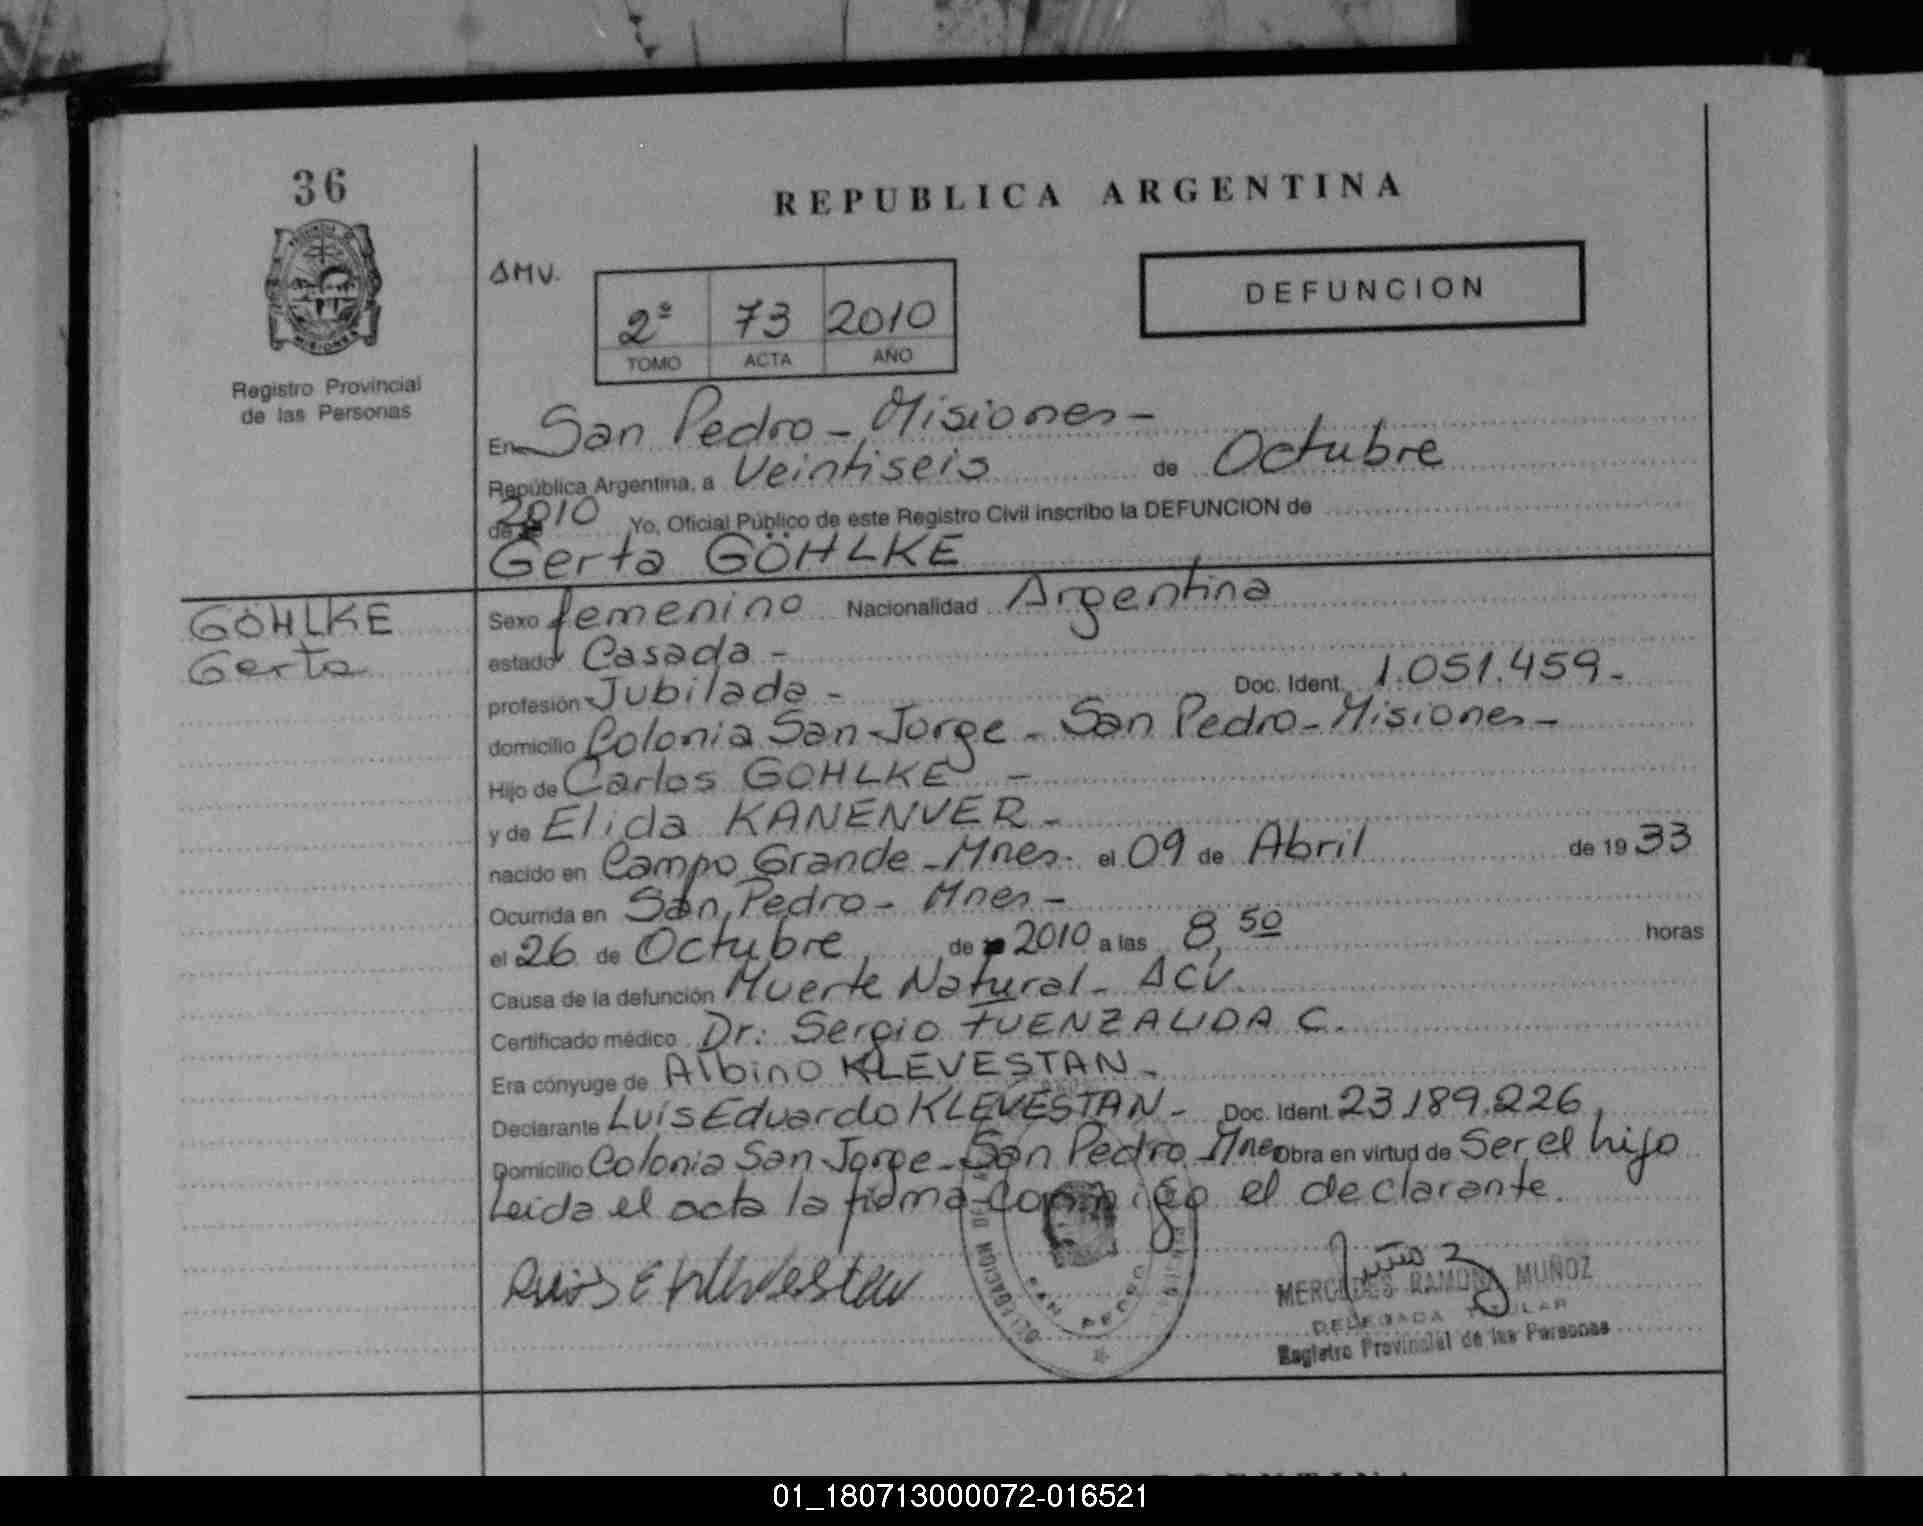 36
REPUBLICA ARGENTINA
AMV.
2º 73 2010
TOMO ACTA AÑO
DEFUNCION
Registro Provincial
de las Personas
En San Pedro - Misiones -
República Argentina, a Veintiseis de Octubre
de 2010 Yo, Oficial Público de este Registro Civil inscribo la DEFUNCION de
Gerta GÖHLKE
GÖHLKE
Gerta
Sexo femenino Nacionalidad Argentina
estado Casada -
profesión Jubilada - Doc. Ident. 1.051.459.-
domicilio Colonia San Jorge - San Pedro - Misiones -
Hijo de Carlos GOHLKE -
y de Elida KANENVER -
nacido en Campo Grande - Mnes. el 09 de Abril de 1933
Ocurrida en San Pedro - Mnes -
el 26 de Octubre de 2010 a las 8,50 horas
Causa de la defunción Muerte Natural - ACV.
Certificado médico Dr: Sergio FUENZALIDA C.
Era cónyuge de Albino KLEVESTAN -
Declarante Luis Eduardo KLEVESTAN - Doc. Ident. 23.189.226,
Domicilio Colonia San Jorge - San Pedro Mnes Obra en virtud de Ser el hijo
Leida el acta la firma conmigo el declarante.
MERCEDES RAMONA MUÑOZ
DELEGADA TITULAR
Registro Provincial de las Personas
DELEGACION
SAN PEDRO
01_180713000072-016521